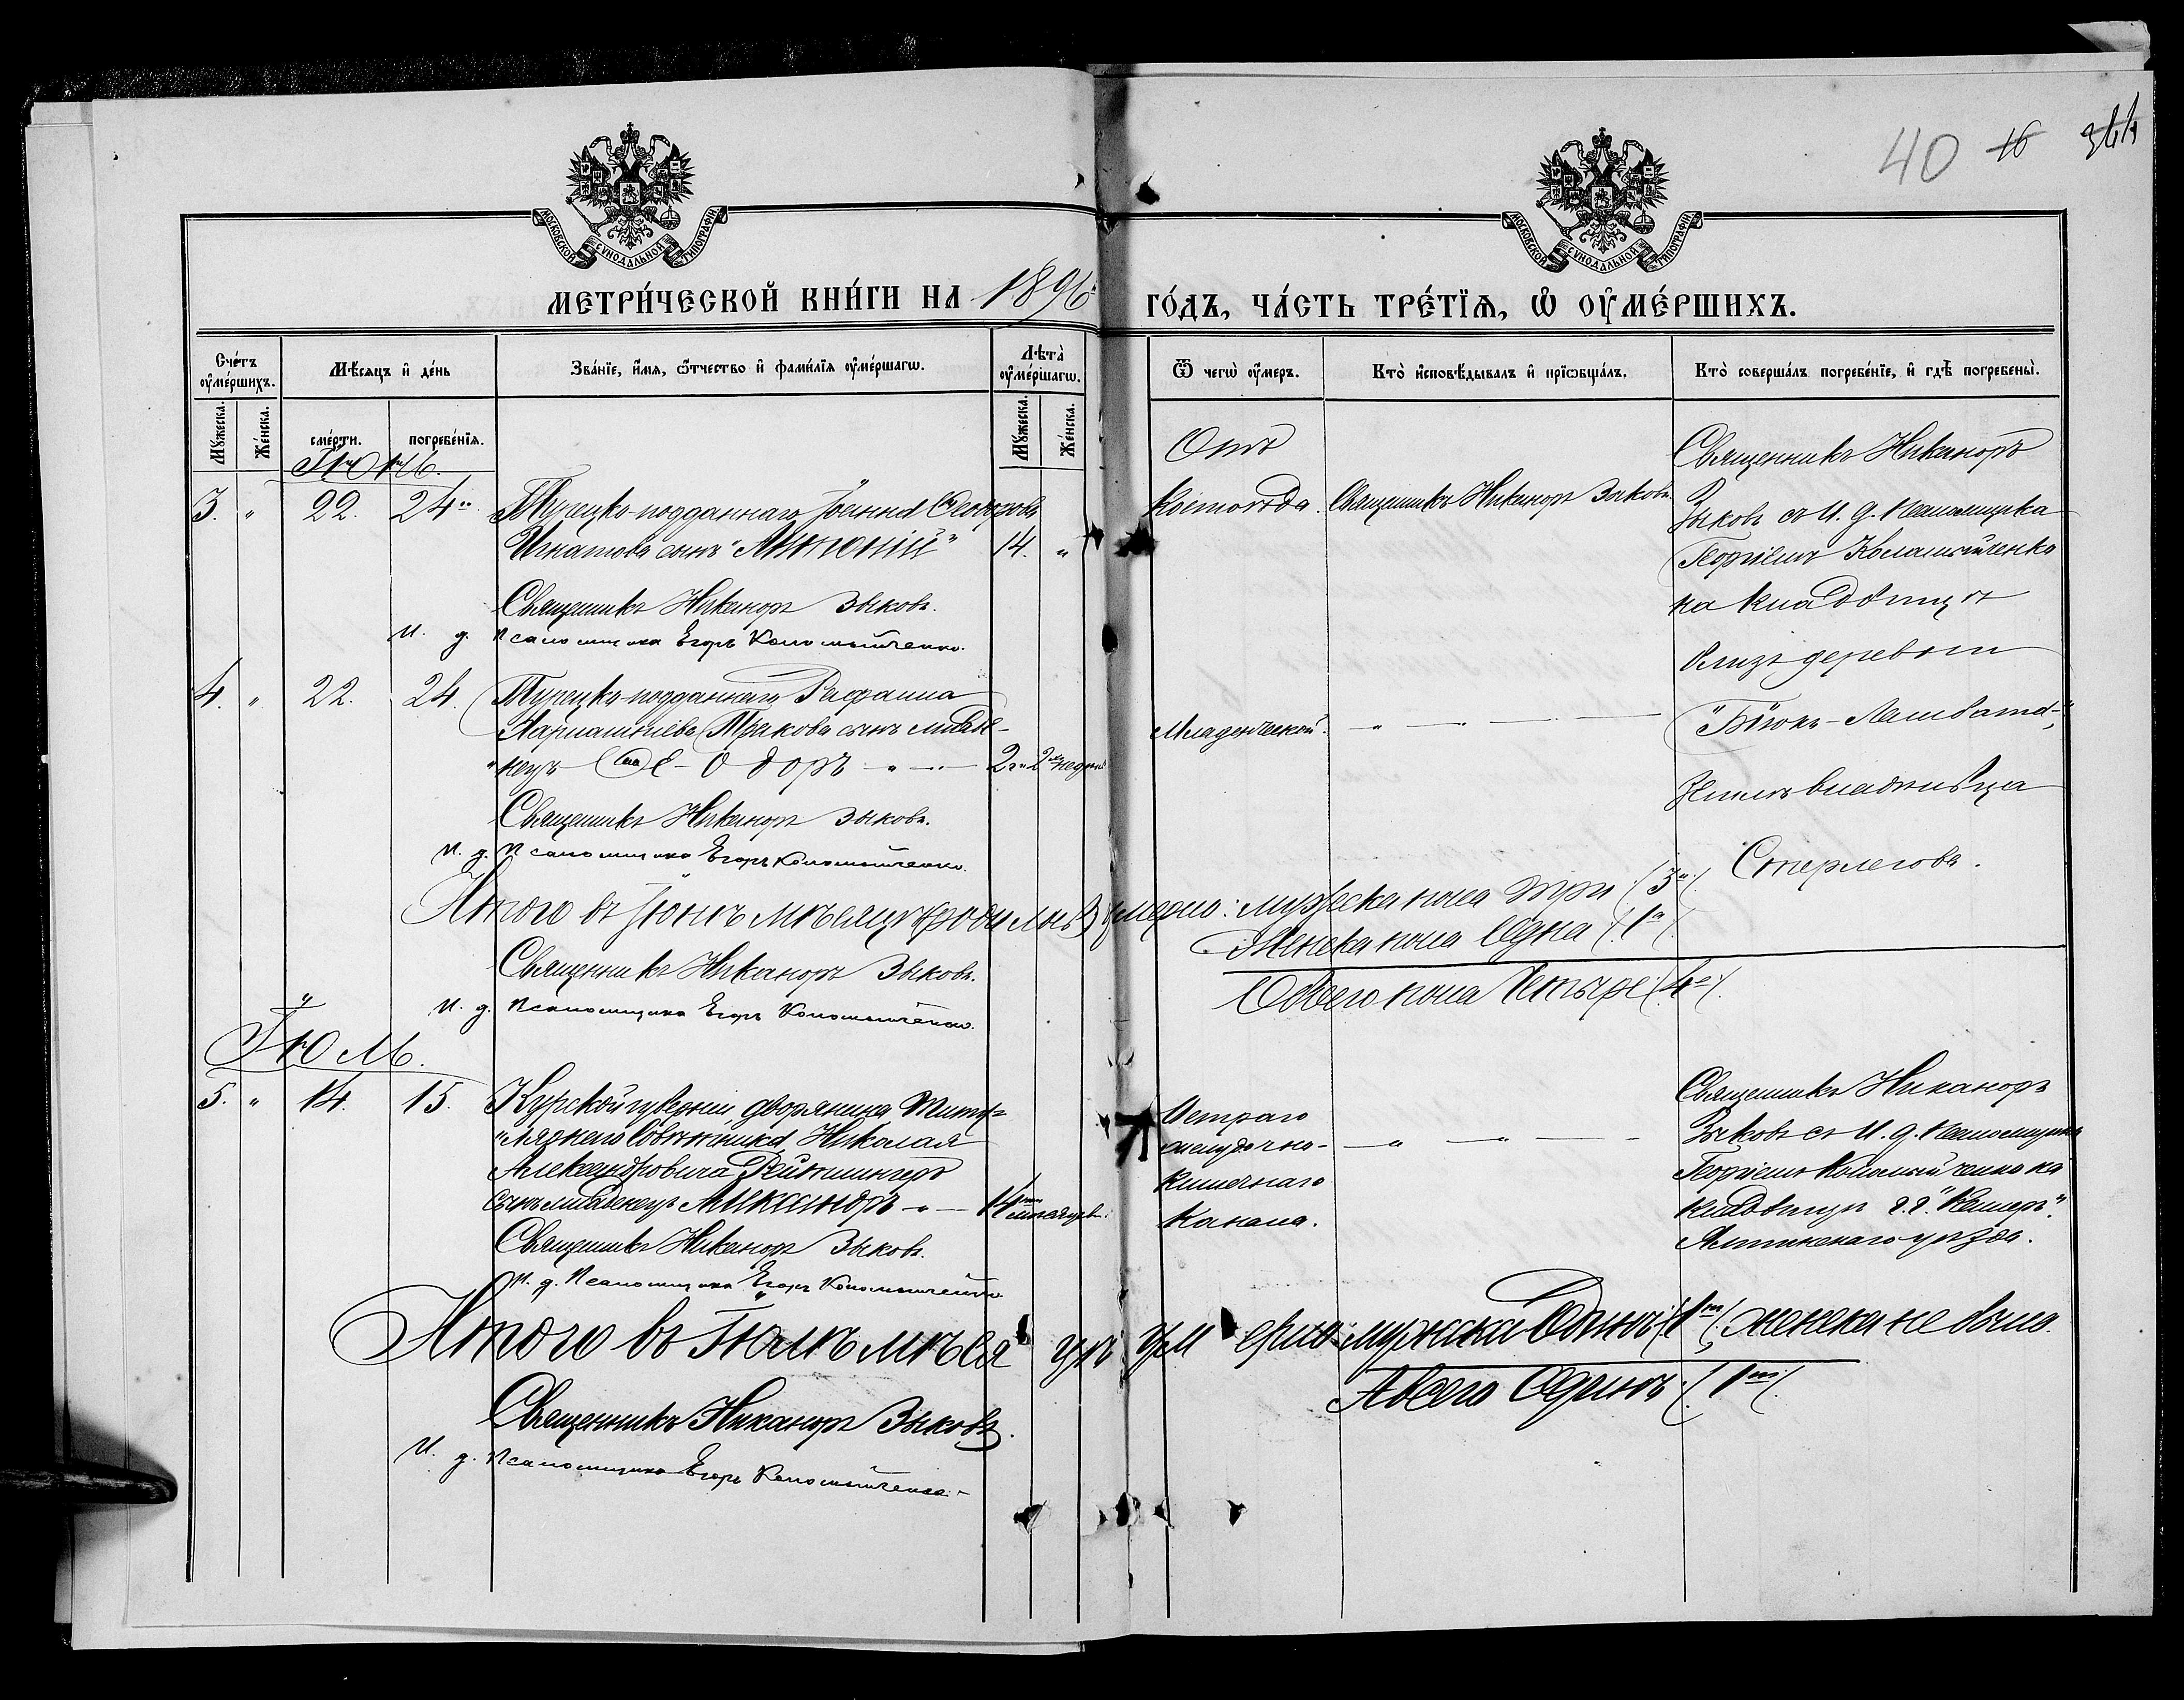 40 16 344
МОСКОВСКОЙ СѴНОДАЛЬНОЙ ТИПОГРАФІИ
МОСКОВСКОЙ СѴНОДАЛЬНОЙ ТИПОГРАФІИ
МЕТРИ́ЧЕСКОЙ КНИ́ГИ НА 1896
ГО́ДЪ, ЧА́СТЬ ТРЕ́ТІѦ, Ѡ҆ ОУ҆МЕ́РШИХЪ.
Сче́тъ оу҆ме́ршихъ.
Мѣ́сяцъ и҆ де́нь
Зва́нїе, и҆́мѧ, ѻ҆́тчество и҆ фами́лїѧ оу҆ме́ршагѡ.
Лѣ́та оу҆ме́ршагѡ.
Ѿ чегѡ̀ оу҆́меръ.
Кто̀ и҆сповѣ́дывалъ и҆ прїѡбща́лъ.
Кто̀ соверша́лъ погребе́нїе, и҆ гдѣ̀ погребены̀.
Мꙋ́жеска.
Же́нска.
сме́рти.
погребе́нїѧ.
Мꙋ́жеска.
Же́нска.
Іюнь.
3. " 22. 24 Турецко-подданнаго Іоанна Ѳеодорова
Игнатова сынъ "Антоній" 14. "
Священникъ Никаноръ Зыковъ.
И. д. Псаломщика Егоръ Коломыйченко.
Отъ
Священникъ Никаноръ Зыковъ.
Священникъ Никаноръ
Зыковъ съ И. д. Псаломщика
Георгіемъ Коломыйченко
на кладбищѣ
близъ деревни
"Біюкъ-Ламбата",
землевладѣльца
Стерлегова.
4. " 22. 24. Турецко-подданнаго
сынъ младе-
нецъ Ѳе-о доръ 2 г. 2 недѣли
Священникъ Никаноръ Зыковъ.
И. д. Псаломщика Егоръ Коломыйченко.
Младенческой.
Итого въ Іюнѣ мѣсяцѣ умерло: мужеска пола три (3)
Женска пола Одна (1а)
Обоего пола Четыре (4е)
Священникъ Никаноръ Зыковъ.
И. д. Псаломщика Егоръ Коломыйченко.
Іюль.
5. " 14. 15. Курской губерніи дворянина Титу=
лярнаго Совѣтника Николая
Александровича
сынъ младенецъ Александръ 11 мѣсяцев.
Священникъ Никаноръ Зыковъ.
И. д. Псаломщика Егоръ Коломыйченко.
Остраго
желудочно-
кишечнаго
Канала.
Священникъ Никаноръ
Зыковъ съ И. д. Псаломщика
Георгіемъ Коломыйченко на
кладбищѣ
Ялтинскаго уѣзда.
Итого въ Іюлѣ мѣсяцѣ умерло мужска Одинъ (1) женска не было.
А всего Одинъ (1)
Священникъ Никаноръ Зыковъ.
И. д. Псаломщика Егоръ Коломыйченко.